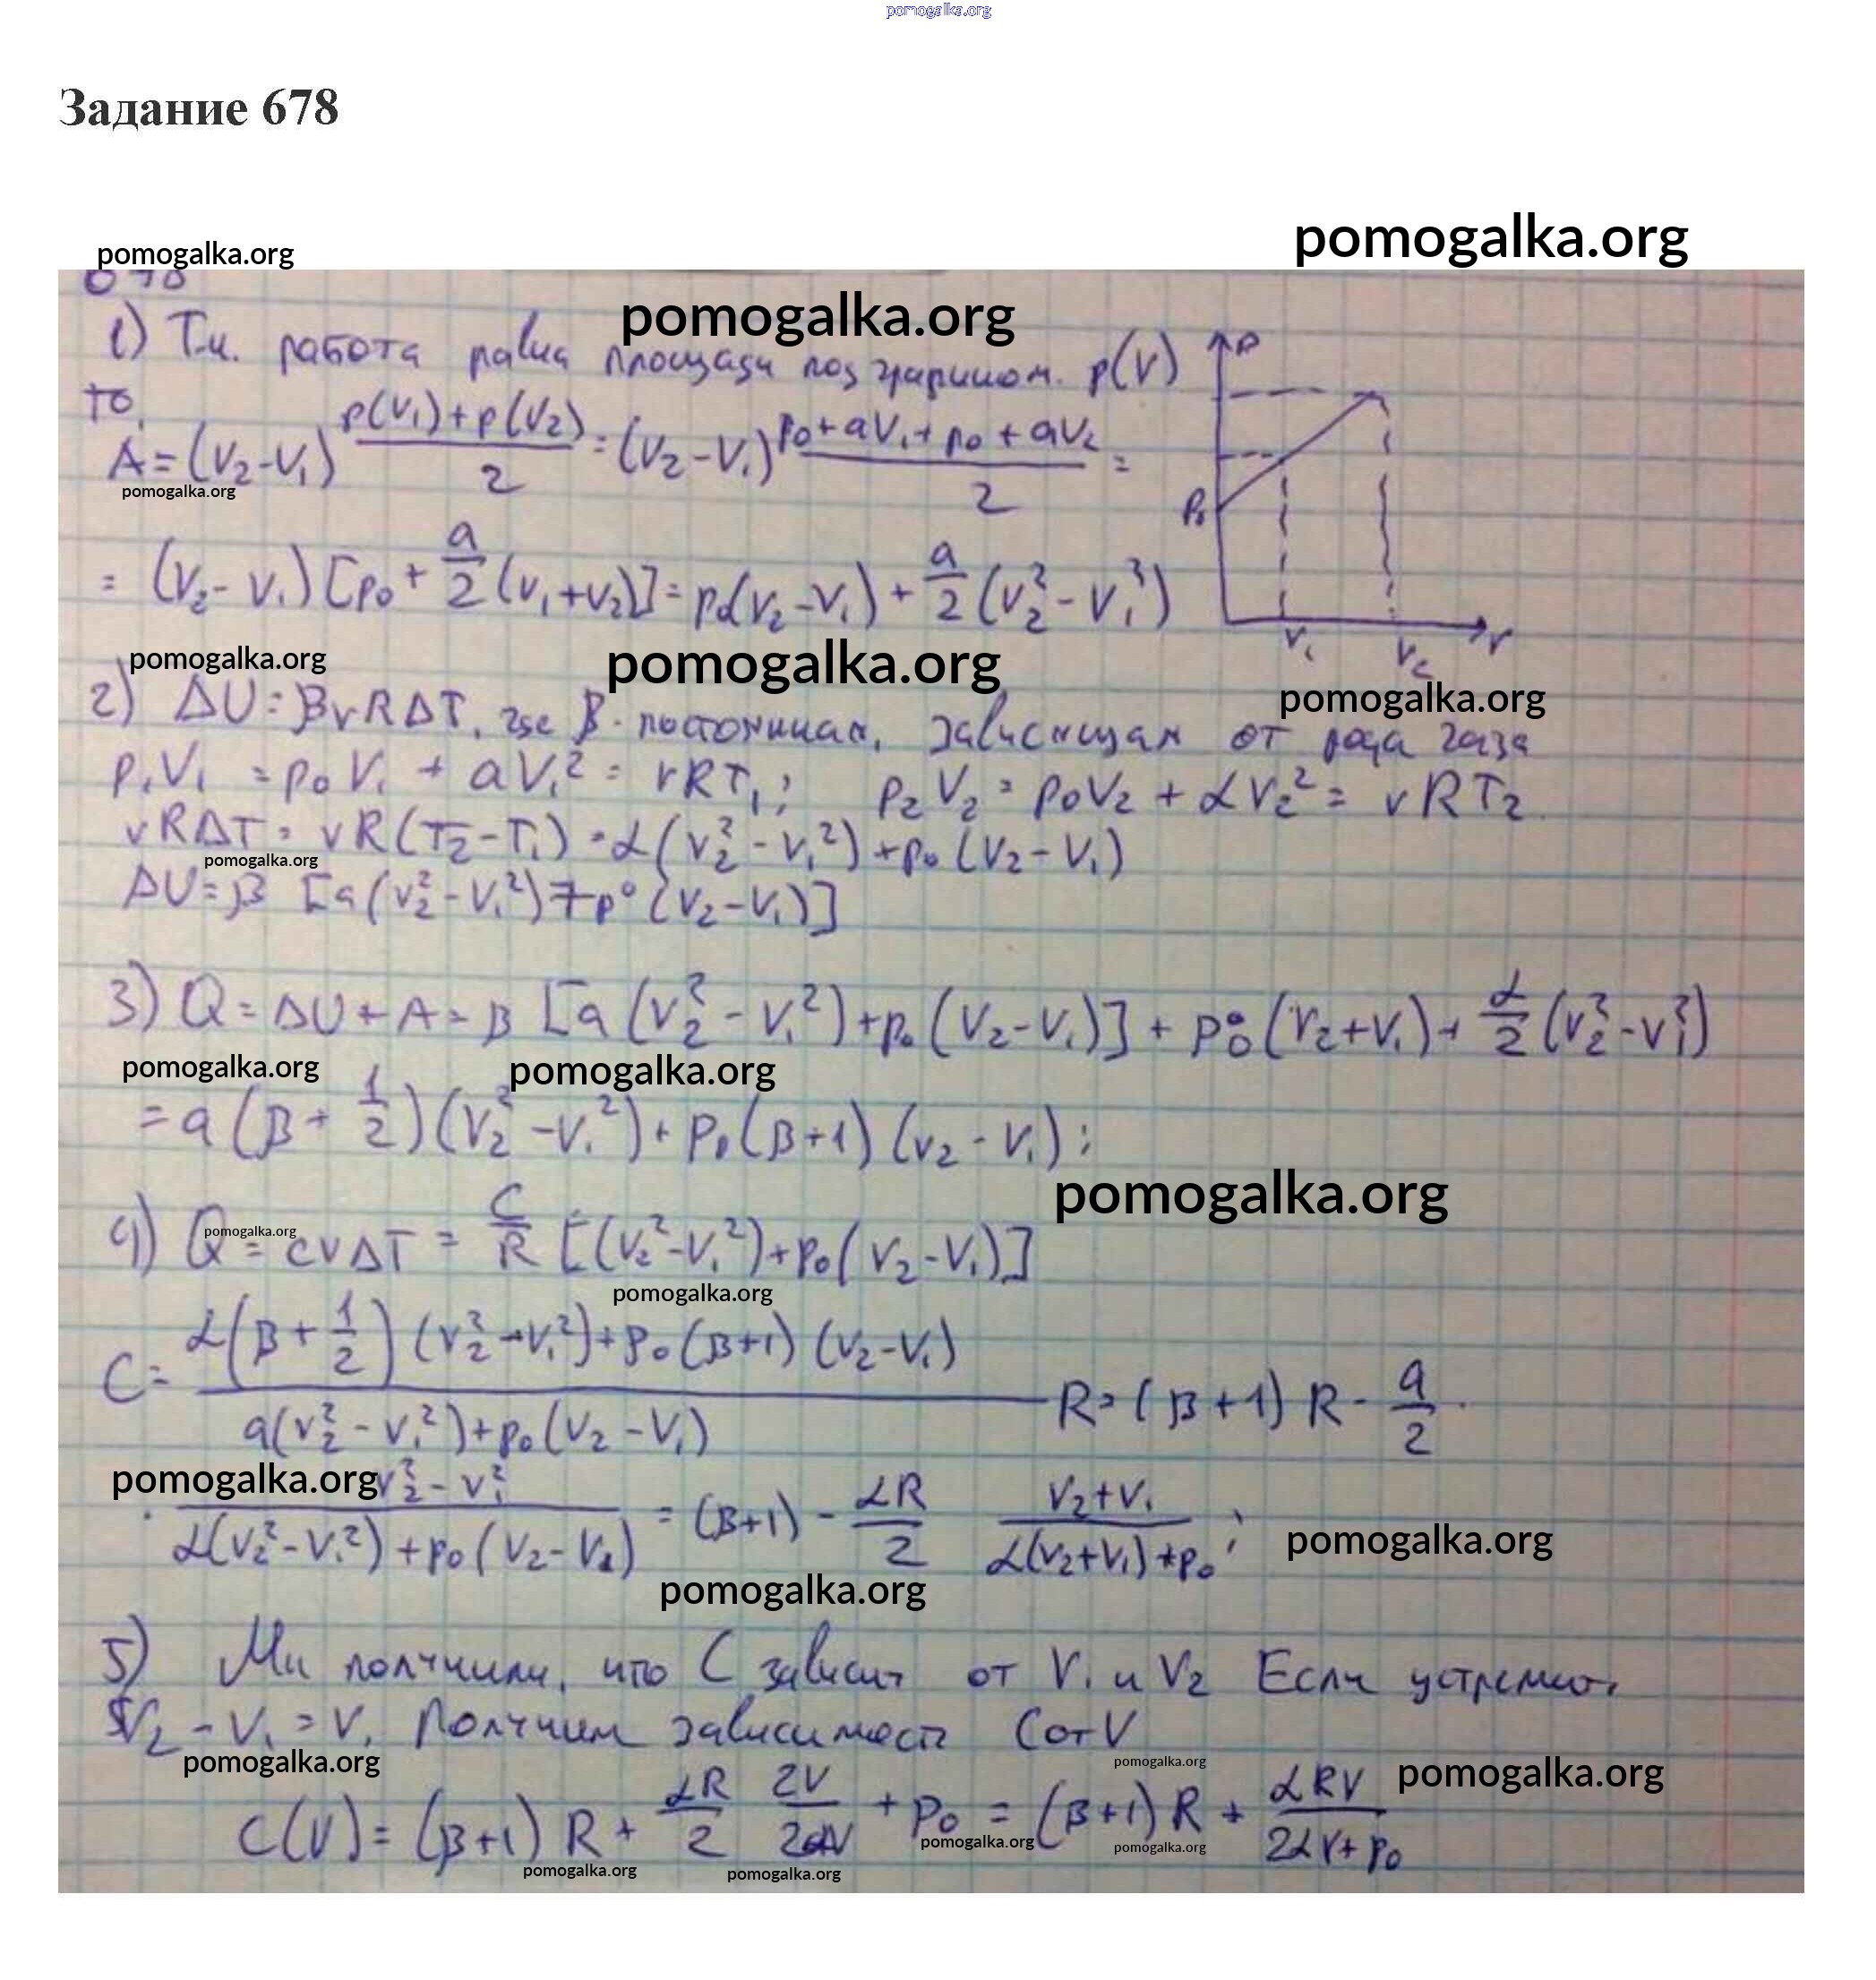 pomogalka.org
Задание 678
pomogalka.org
pomogalka.org
678
pomogalka.org
1) Т.к. работа равна площади под графиком. p(V)
то,
A = (V₂-V₁) (p(V₁)+p(V₂))/2 = (V₂-V₁) (p₀+aV₁+p₀+aV₂)/2 =
pomogalka.org
= (V₂-V₁)[p₀+a/2(V₁+V₂)] = p₀(V₂-V₁)+a/2(V₂²-V₁²)
p
P₀
V₁
V₂
V
pomogalka.org
pomogalka.org
pomogalka.org
2) ΔU = βνRΔT, где β - постоянная, зависящая от рода газа
p₁V₁ = p₀V₁ + aV₁² = νRT₁; p₂V₂ = p₀V₂ + αV₂² = νRT₂
νRΔT = νR(T₂-T₁) = α(V₂²-V₁²)+p₀(V₂-V₁)
pomogalka.org
ΔU = β [a(V₂²-V₁²)+p⁰(V₂-V₁)]
3) Q = ΔU + A = β [a(V₂²-V₁²)+p₀(V₂-V₁)] + p₀(V₂+V₁)+α/2(V₂²-V₁²)
pomogalka.org
pomogalka.org
= a(β+1/2)(V₂²-V₁²)+p₀(β+1)(V₂-V₁);
pomogalka.org
4) Q = CνΔT = C/R [(V₂²-V₁²)+p₀(V₂-V₁)]
pomogalka.org
pomogalka.org
C = (α(β+1/2)(V₂²-V₁²)+p₀(β+1)(V₂-V₁))/(a(V₂²-V₁²)+p₀(V₂-V₁)) R = (β+1)R - a/2 ·
pomogalka.org
· (V₂²-V₁²)/(α(V₂²-V₁²)+p₀(V₂-V₁)) = (β+1) - αR/2 (V₂+V₁)/(α(V₂+V₁)+p₀);
pomogalka.org
pomogalka.org
5) Мы получили, что C зависит от V₁ и V₂ Если устремить
V₂-V₁=V, Получим зависимость C от V
pomogalka.org
pomogalka.org
pomogalka.org
C(V) = (β+1)R + αR/2 2V/2αV + p₀ = (β+1)R + αRV/(2αV+p₀)
pomogalka.org
pomogalka.org
pomogalka.org
pomogalka.org